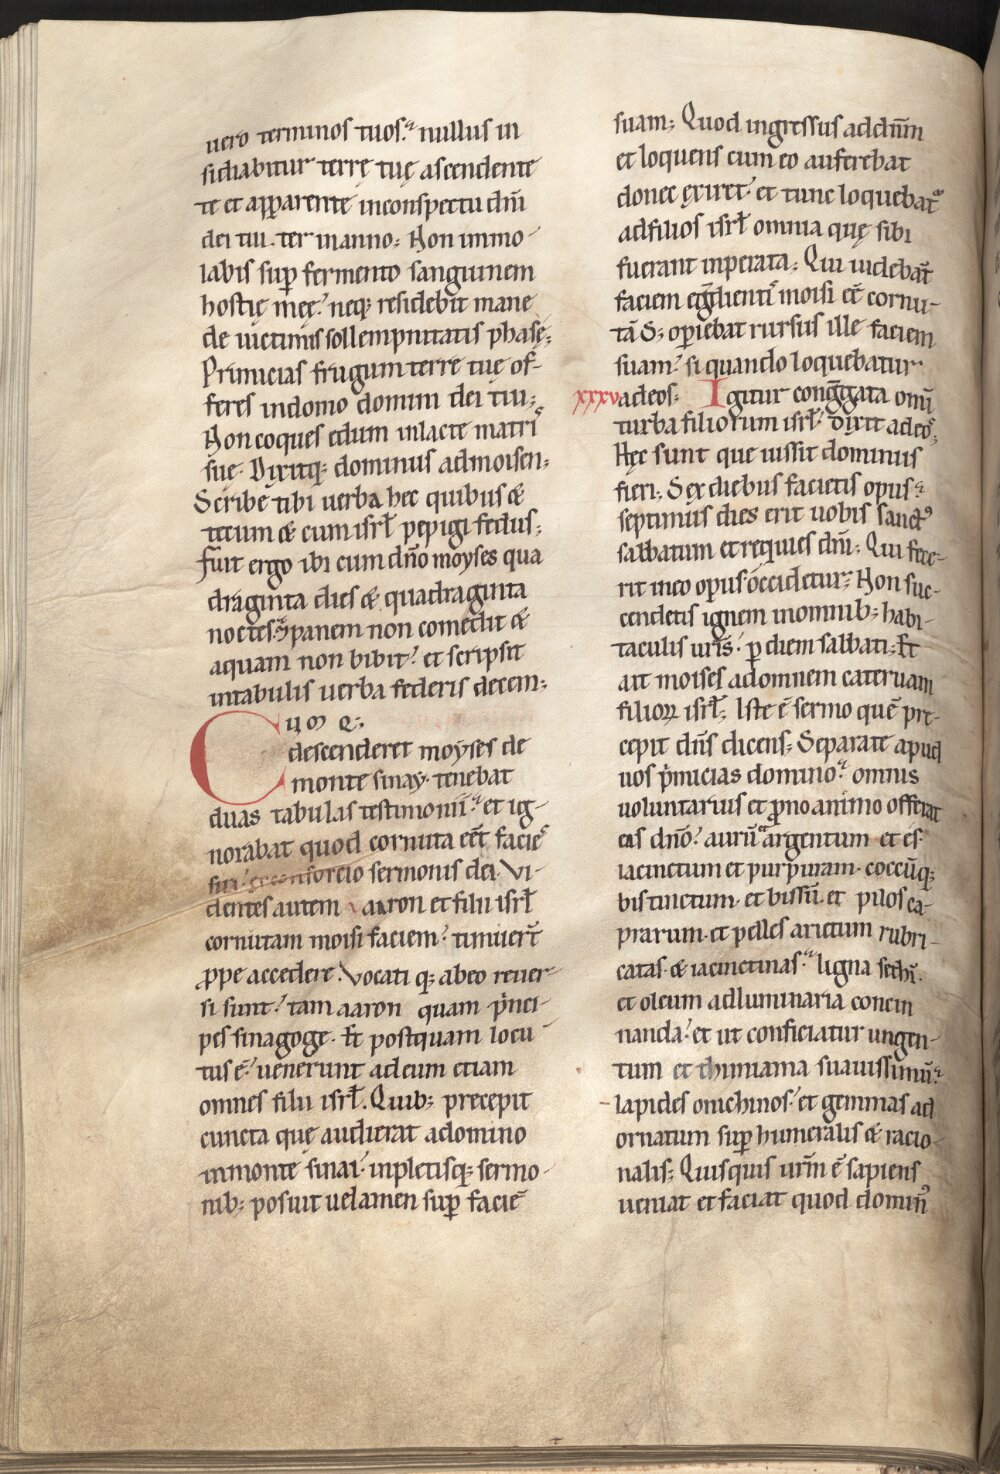 uero terminos tuos. nullus in
sidiabitur terrę tuę ascendente
te et apparente inconspectu dn̄i
dei tui. ter in anno. Non immo
labis sup̱ fermento sanguinem
hostię męę. neq; residebit mane
de uictimis sollempnitatis phasę;
Primicias frugum terre tuę of-
feres indomo domini dei tui;
Non coques edum inlacte matrı̄
sue. Dixitq; dominus admoisen;
Scribe tibi uerba hec quibus &
tecum & cum isrł pepigi fedus;
fuit ergo ibi cum dn̄o moyses qua
draginta dies & quadraginta
noctes. panem non comedit &
aquam non bibit. et scripsit
intabulis uerba federis decem;
Cumq;
descenderet moyses de
monte sinay. tenebat
duas tabulas testimonii. et ig-
norabat quod cornuta eēt facies
sui ex consorcio sermonis dei. Vi-
dentes autem aaron et filii isrł
cornutam moisi faciem. timuer̄t
ꝓpe accedere. Vocati q; abeo reuer-
si sunt. tam aaron quam p̄nci-
pes sinagoge. Et postquam locu-
tus ē. uenerunt adeum etiam
omnes filii isrł. Quib; precepit
cuncta que audierat adomino
inmonte sinai. inpletisq; sermo-
nib; posuit uelamen sup̱ faciē
suam; Quod ingressus addn̄m
et loquens cum eo auferebat
donec exiret. et tunc loquebat᷑
adfilios isrł omnia quę sibi
fuerant inperata; Qui uideban̄t
faciem eḡdientı̄ moisi eē cornu-
tā S; op̱iebat rursus ille faciem
suam. si quando loquebatur
xxxv adeos. Igitur cong̅gata omı̄
turba filiorum isrł. dixit adeos;
Hęc sunt que iussit dominus
fieri; Sex diebus facietis opus.
septimus dies erit uobis sanctꝰ
sabbatum et requies dn̄i; Qui fece-
rit ineo opus occidetur; Non suc-
cendetis ignem inomnib; habi-
taculis ur̄is. p̱ diem sabbati; Et
ait moises adomnem cateruam
filioꝝ isrł; Iste ē sermo quē pre-
cepit dn̄s dicens; Separate apud
uos p̄micias domino. omnis
uoluntarius et ꝓno animo offerat
eas dn̄o. aurū argentum et es.
iacinctum et purpuram. coccūq;
bistinctum. et bissū. et pilos ca-
prarum. et pelles arietum rubri-
catas. & iacinctinas. ligna sethı̄.
et oleum adluminaria concin
nanda. et ut conficiatur ungen-
tum et thimiama suauissimū.
lapides onichinos. et gemmas ad
ornatum sup̱ humeralis & racio-
nalis; Quisquis ur̄m ē sapiens
ueniat et faciat quod dominꝰ